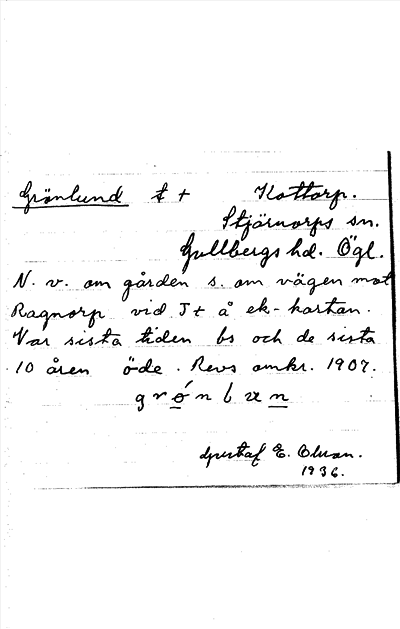 Grönlund t + Kottorp.
Stjärnorps sn.
Gullbergs hd. Ögl.
N. v. om gården s. om vägen mot
Ragnorp vid T+ å ek-kartan.
Var sista tiden bs och de sista
10 åren öde. Revs omkr. 1907.
Gustaf E. Olsson.
1936.